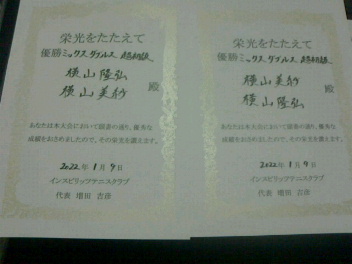 栄光をたたえて
優勝 ミックスダブルス 超初級
横山 隆弘
横山 美紗
殿
あなたは本大会において頭書の通り、優秀な
成績をおさめましたので、その栄光を讃えます。
2022年1月9日
インスピリッツテニスクラブ
代表 増田 吉彦
栄光をたたえて
優勝 ミックスダブルス 超初級
横山 美紗
横山 隆弘
殿
あなたは本大会において頭書の通り、優秀な
成績をおさめましたので、その栄光を讃えます。
2022年1月9日
インスピリッツテニスクラブ
代表 増田 吉彦